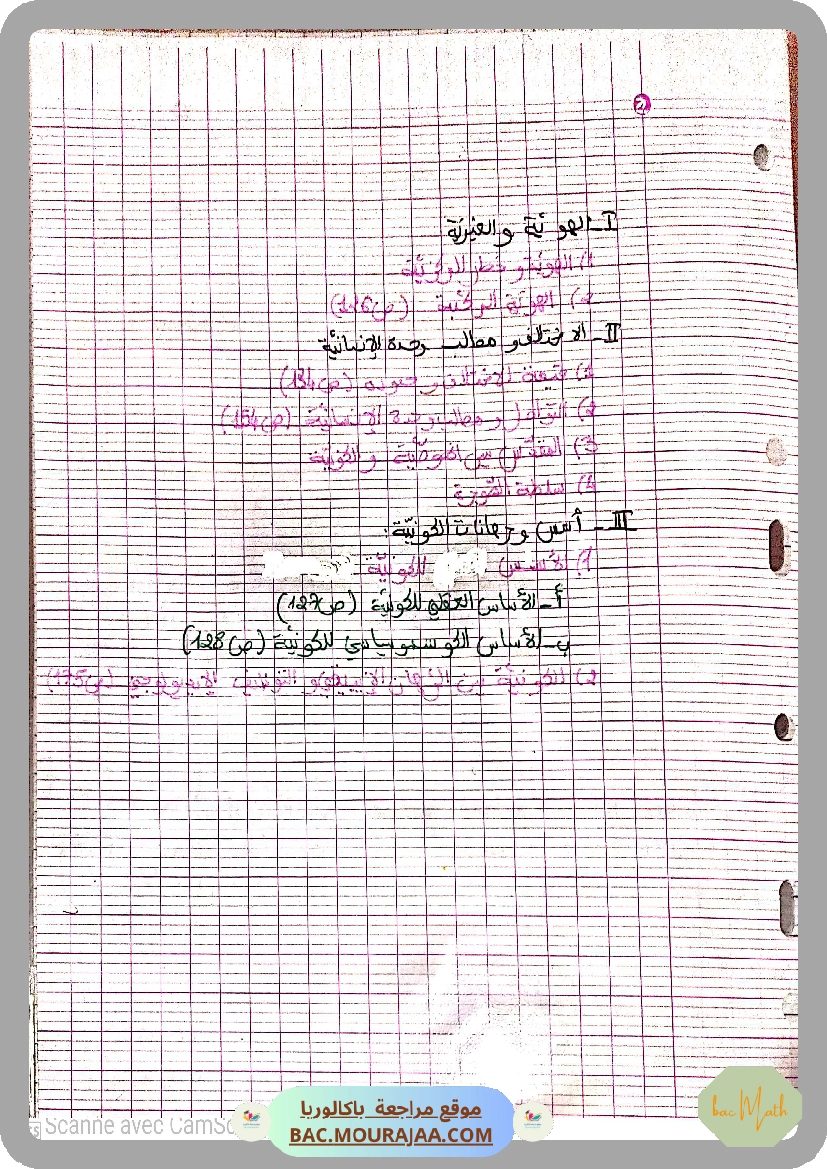 2
I_ الهوية والغيرية
1) الهوية وخطر اللاكونية
2) الهوية المركبة (ص116)
II_ الاختلاف ومطالب وحدة الإنسانية
1) حقيقة الاختلاف و حدوده (ص134)
2) التواصل ومطلب وحدة الإنسانية (ص154)
3) المقدس بين الخصوصية والكونية
4) سلطة الصورة
III_ أسس ورهانات الكونية:
1) الأسس للكونية
أ_ الأساس العقلي للكونية (ص127)
ب_ الأساس الكوسموسياسي للكونية (ص128)
2) الكونية بين الرهان الإيتيقي و التوظيف الإيديولوجي (ص175)
Scanné avec CamSc
موقع مراجعة باكالوريا
BAC.MOURAJAA.COM
bac Math